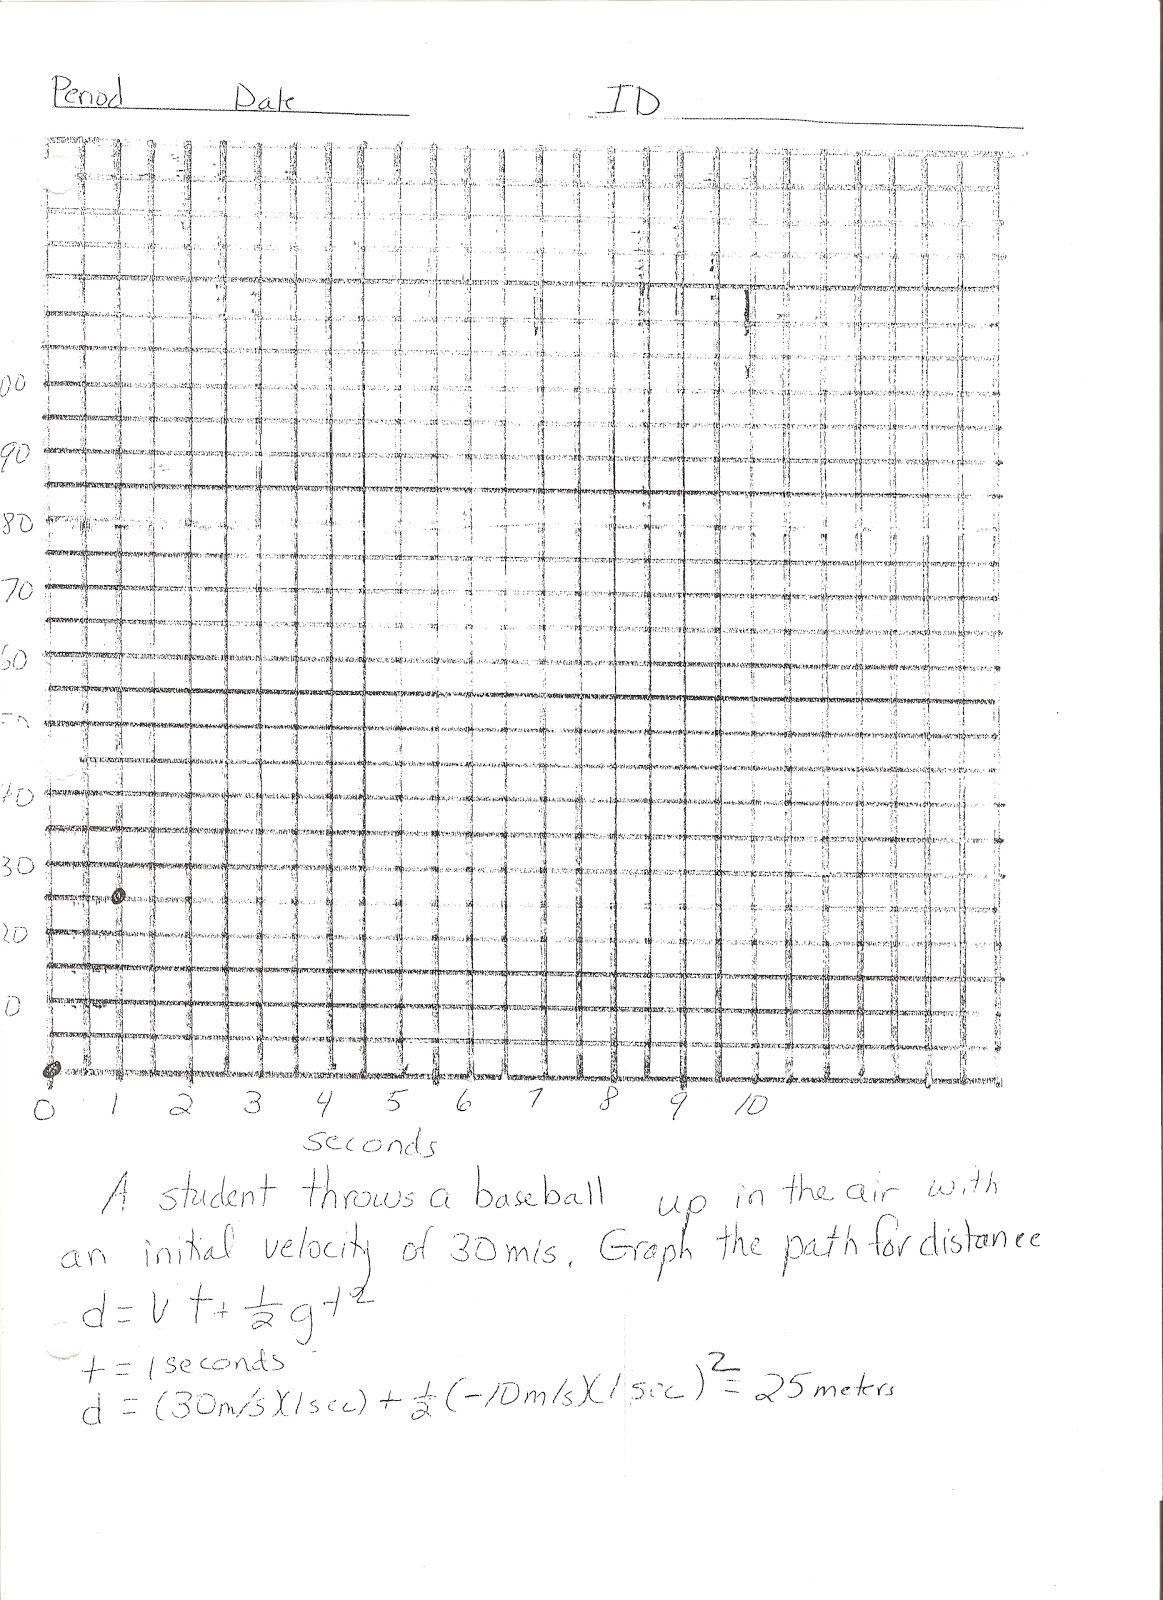 Period Date ID
00
90
80
70
60
30
20
0
0 1 2 3 4 5 6 7 8 9 10
seconds
A student throws a baseball up in the air with
an initial velocity of 30m/s. Graph the path for distance
d = v t + 1/2 g t²
t = 1 seconds
d = (30m/s)(1sec) + 1/2 (-10m/s)(1 sec)² = 25 meters